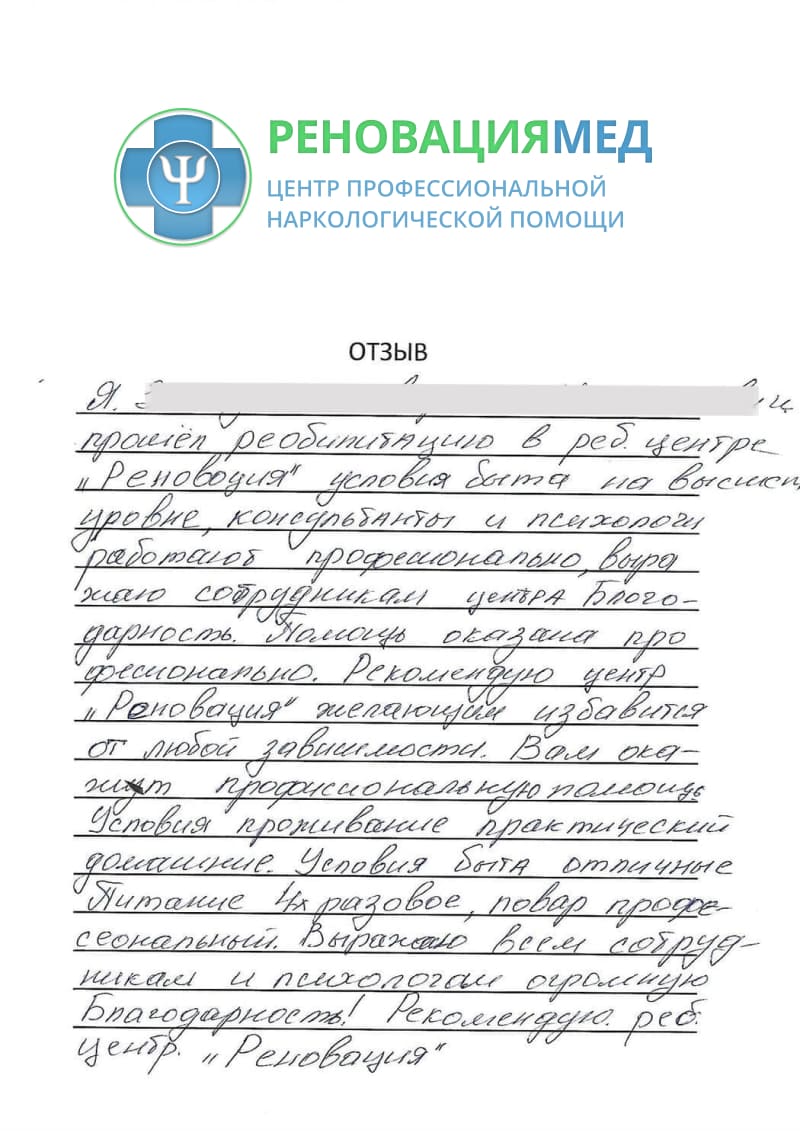 РЕНОВАЦИЯМЕД
ЦЕНТР ПРОФЕССИОНАЛЬНОЙ
НАРКОЛОГИЧЕСКОЙ ПОМОЩИ
ОТЗЫВ
Я.
прошёл реобилитацию в реб. центре
„Реновоция" условия быта на высшем
уровне, консультанты и психологи
работают професионально, выра
жаю сотрудникам центра Благо-
дарность. Помощь оказана про
фесионально. Рекомендую центр
„Реновация" желающим избавится
от любой зависимости. Вам ока-
жут професиональную помощь
Условия проживание практический
домашние. Условия быта отличные
Питание 4х разовое, повар профе-
сеональный. Выражаю всем сотруд-
никам и психологам огромную
Благодарность! Рекомендую. реб.
центр. „Реновация"